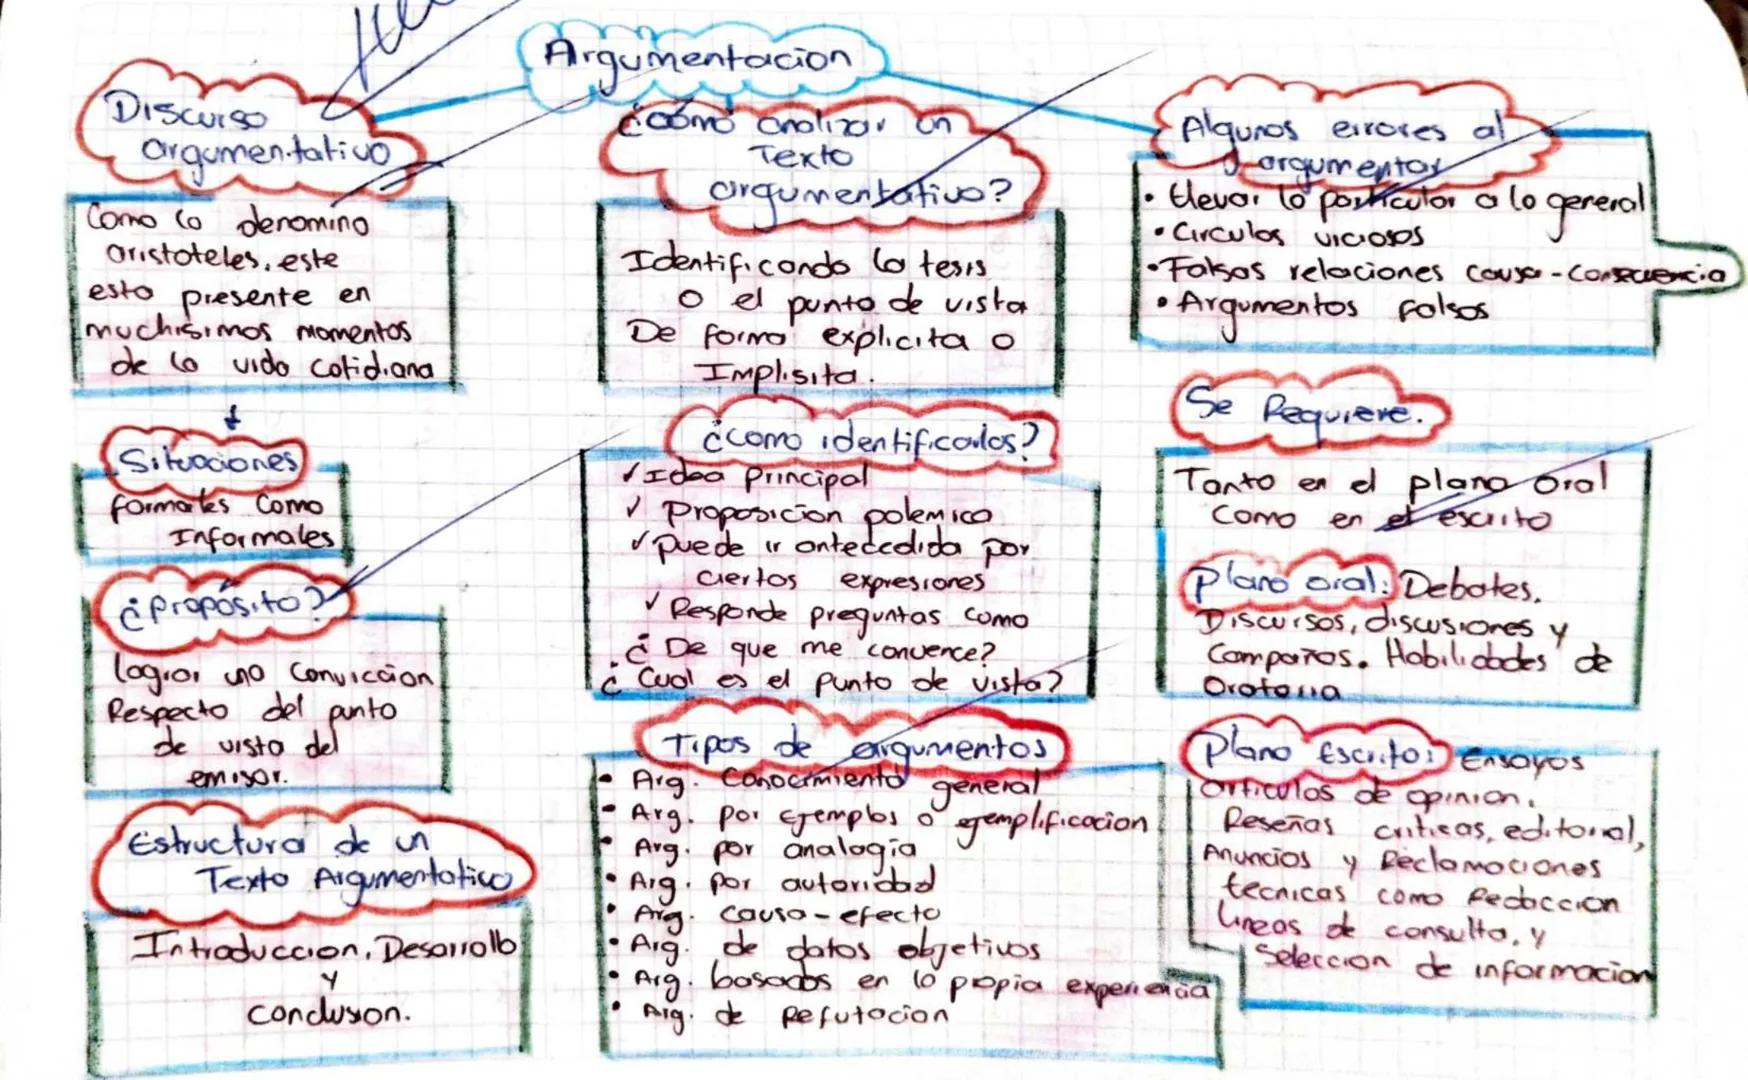 Argumentacion
Discurso
argumentativo
Como lo denomino
aristoteles, este
esta presente en
muchisimos momentos
de la vida cotidiana
Situaciones
formales Como
Informales
¿Proposito?
lograr una Conviccion
Respecto del punto
de vista del
emisor.
Estructura de un
Texto Argumentativo
Introduccion, Desarrollo
y
Conclusion.
¿Cómo analizar un
Texto
argumentativo?
Identificando la tesis
o el punto de vista
De forma explicita o
Implisita.
¿como identificarlos?
✓ Idea Principal
✓ Proposicion polemica
✓ puede ir antecedida por
ciertos expresiones
✓ Responde preguntas como
¿De que me convence?
¿Cual es el punto de vista?
Tipos de argumentos
• Arg. Conocimiento general
• Arg. por ejemplos o ejemplificacion
• Arg. por analogía
• Arg. por autoridad
• Arg. causa-efecto
• Arg. de datos objetivos
• Arg. basados en la propia experiencia
• Arg. de Refutacion
Algunos errores al
argumentar
• Elevar lo particular a lo general
• Circulos viciosos
• Falsas relaciones causa-consecuencia
• Argumentos falsos
Se Requiere.
Tanto en el plano oral
Como en el escrito
Plano oral: Debates,
Discursos, discusiones y
Campañas. Habilidades de
Oratoria
Plano Escrito: Ensayos
articulos de opinion,
Reseñas criticas, editorial,
Anuncios y Reclamaciones
tecnicas como Redaccion
lineas de consulta, y
Seleccion de informacion